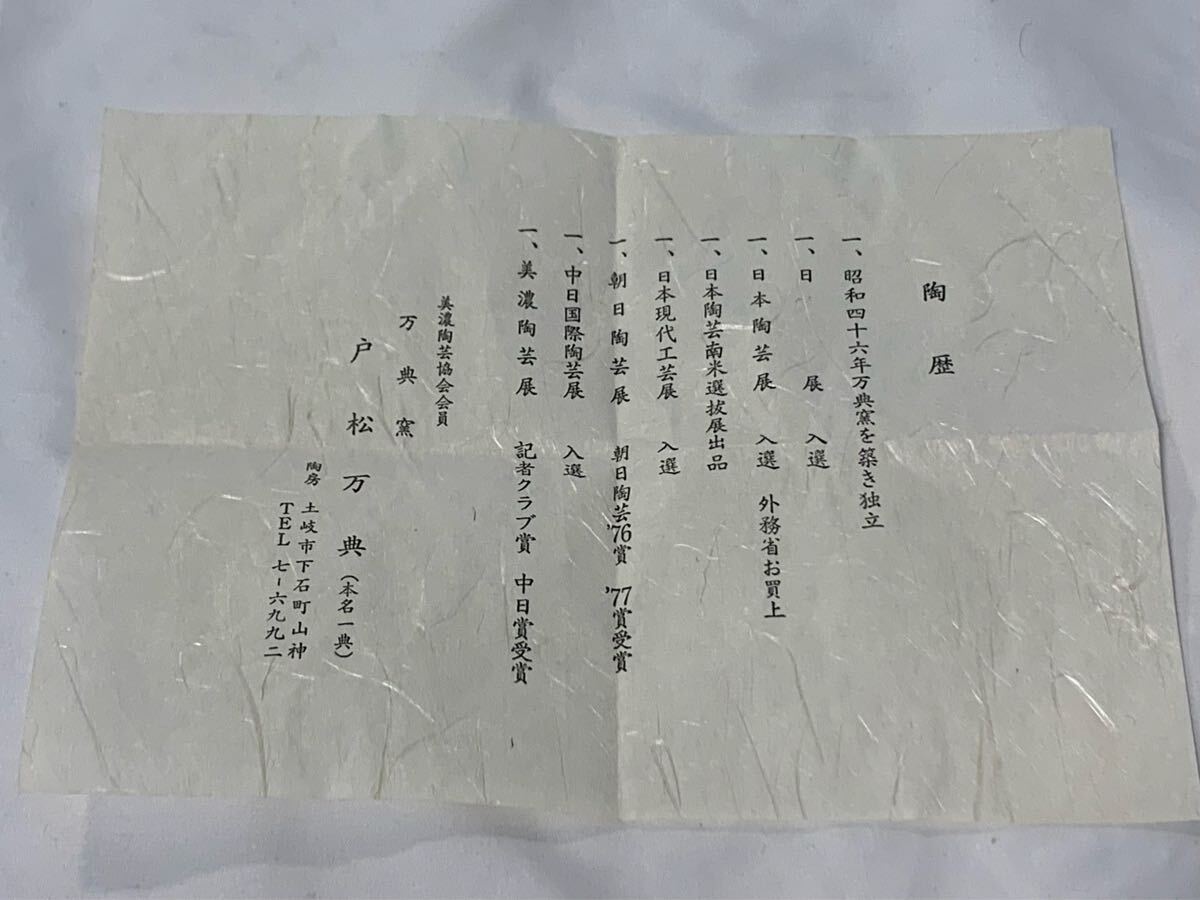 陶歴
一、昭和四十六年万典窯を築き独立
一、日展 入選
一、日本陶芸展 入選 外務省お買上
一、日本陶芸南米選抜展出品
一、日本現代工芸展 入選
一、朝日陶芸展 朝日陶芸'76賞 '77賞受賞
一、中日国際陶芸展 入選
一、美濃陶芸展 記者クラブ賞 中日賞受賞
美濃陶芸協会会員
万典窯
戸松万典(本名一典)
陶房 土岐市下石町山神
TEL 七-六九九二